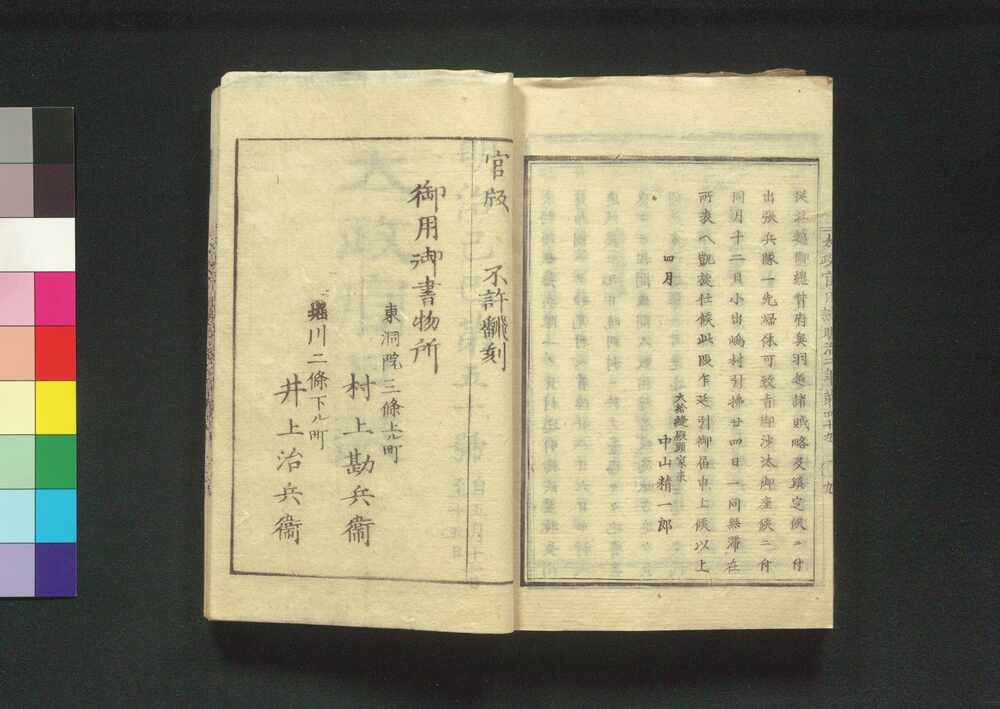 従在越御総督府奥羽越諸賊略及鎮定候ニ付
出張兵隊一先帰休可致旨御沙汰御座候ニ付
同月十二日小出嶋村引拂廿四日一同無滞在
所表ヘ凱旋仕候此段乍延引御届申上候以上
四月
家来
中山精一郎
官版
不許翻刻
御用御書物所
東洞院三條上ル町
村上勘兵衛
堀川二條下ル町
井上治兵衛